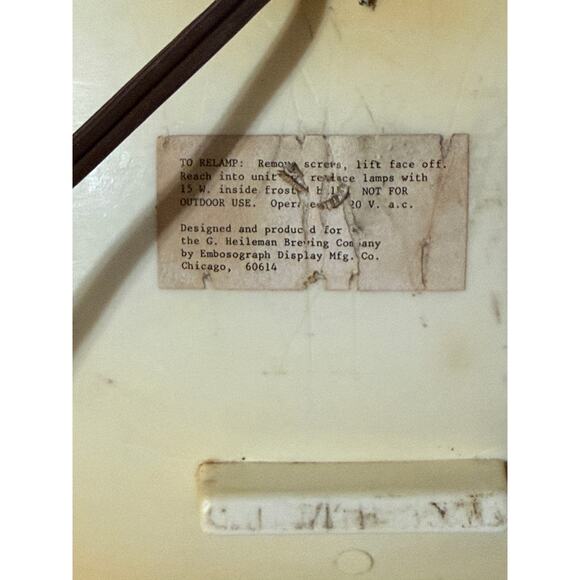 TO RELAMP: Remove screws, lift face off.
Reach into unit replace lamps with
15 W. inside frosted NOT FOR
OUTDOOR USE. 20 V. a.c.
Designed and produced for
the G. Heileman Brewing Company
by Embosograph Display Mfg. Co.
Chicago, 60614